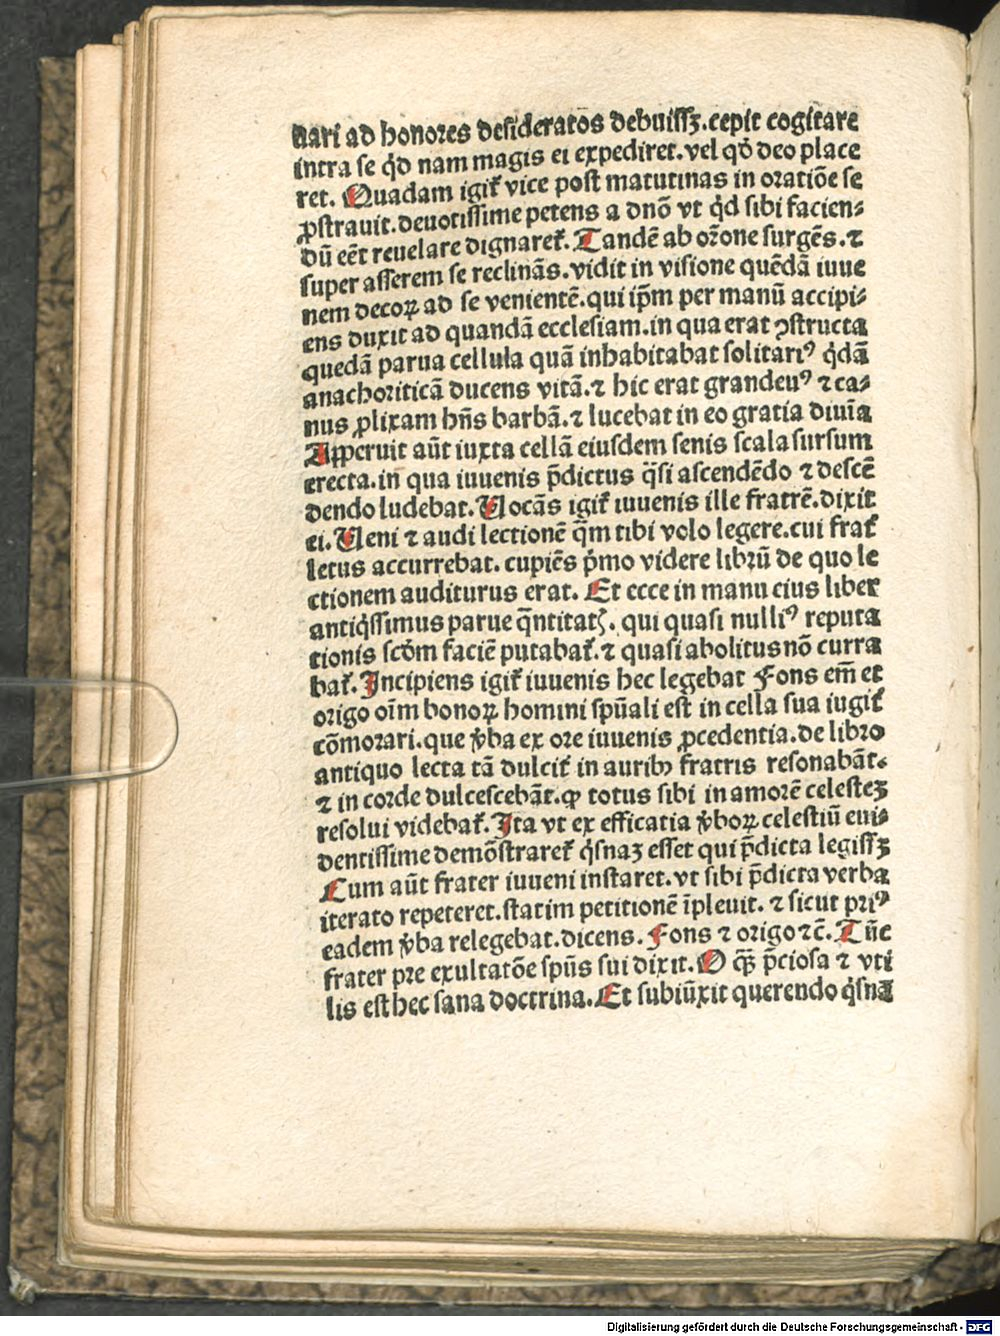 uari ad honores desideratos debuissꝫ.cepit cogitare
intra se qͥd nam magis ei expediret.vel qͦd deo place
ret. Quadam igit᷑ vice post matutinas in oratiōe se
ꝓstrauit.deuotissime petens a dnō vt qͥd sibi facien⸗
dū eēt reuelare dignaret᷑. Tandē ab orōne surgēs.⁊
super asserem se reclinās.vidit in visione quēdā iuue
nem decoꝝ ad se venientē.qui ip̄m per manū accipi⸗
ens duxit ad quandā ecclesiam.in qua erat ꝯstructa
quedā parua cellula quā inhabitabat solitariꝰ qͥdā
anachoriticā ducens vitā.⁊ hic erat grandeuꝰ ⁊ ca⸗
nus ꝓlixam hn̄s barbā.⁊ lucebat in eo gratia diuīa
Apperuit aūt iuxta cellā eiusdem senis scala sursum
erecta.in qua iuuenis p̄dictus q̄si ascendēdo ⁊ descē
dendo ludebat. Uocās igit᷑ iuuenis ille fratrē.dixit
ei. Ueni ⁊ audi lectionē q̄m tibi volo legere.cui frat᷑
letus accurrebat. cupiēs pͥmo videre librū de quo le
ctionem auditurus erat. Et ecce in manu eius liber
antiqͥssimus parue q̄ntitatꝭ. qui quasi nulliꝰ reputa
tionis scd̓m faciē putabat᷑.⁊ quasi abolitus nō curra
bat᷑. Incipiens igit᷑ iuuenis hec legebat Fons em̄ et
origo oīm bonoꝝ homini spūali est in cella sua iugit᷑
cōmorari.que v̓ba ex ore iuuenis ꝓcedentia.de libro
antiquo lecta tā dulcit᷑ in auribꝫ fratris resonabāt.
⁊ in corde dulcescebāt.ꝙ totus sibi in amorē celesteꝫ
resolui videbat᷑. Ita vt ex efficatia v̓boꝝ celestiū eui⸗
dentissime demōstraret᷑ qͥsnaꝫ esset qui p̄dicta legissꝫ
Cum aūt frater iuueni instaret.vt sibi p̄dicta verba
iterato repeteret.statim petitionē īpleuit. ⁊ sicut priꝰ
eadem v̓ba relegebat.dicens. Fons ⁊ origo ⁊c̄. Tūc
frater pre exultatōe spūs sui dixit. O qꝫ̄ p̄ciosa ⁊ vti
lis est hec sana doctrina. Et subiūxit querendo qͥsnā
Digitalisierung gefördert durch die Deutsche Forschungsgemeinschaft - DFG